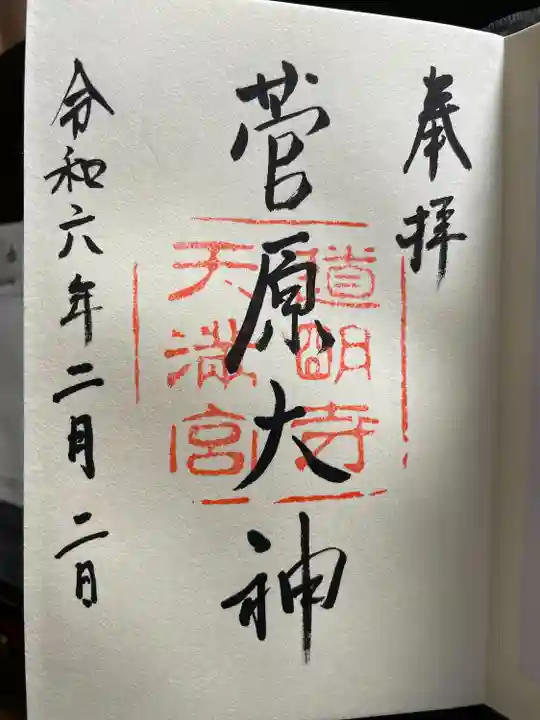 奉拝
菅原大神
道明寺
天満宮
令和六年二月二日